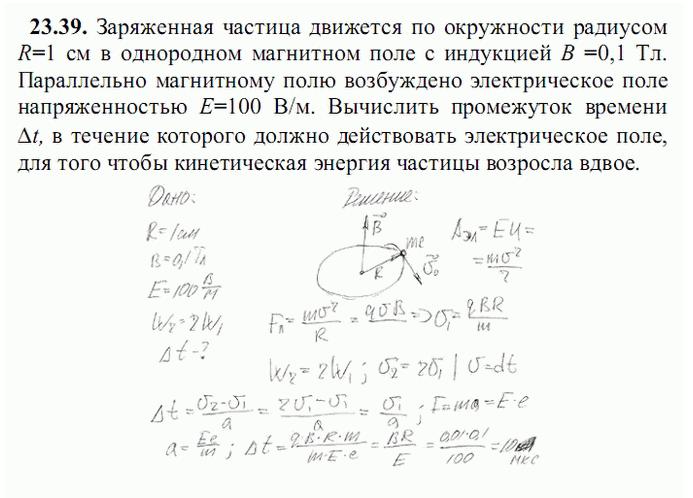 23.39. Заряженная частица движется по окружности радиусом
R=1 см в однородном магнитном поле с индукцией B =0,1 Тл.
Параллельно магнитному полю возбуждено электрическое поле
напряженностью E=100 В/м. Вычислить промежуток времени
Δt, в течение которого должно действовать электрическое поле,
для того чтобы кинетическая энергия частицы возросла вдвое.
Дано: Решение:
R=1см
B=0,1Тл
E=100 В/м
W₂=2W₁
Δt-?
B⃗ me R υ⃗₀
Aэл=EU=
=mυ²/2
Fл=mυ²/R=qυB=>υ₁=qBR/m
W₂=2W₁; υ₂=2υ₁ | υ=dt
Δt=υ₂-υ₁/a=2υ₁-υ₁/a=υ₁/a; F=ma=E·e
a=Ee/m; Δt=q·B·R·m/m·E·e=BR/E=0,01·0,1/100=10 мкс